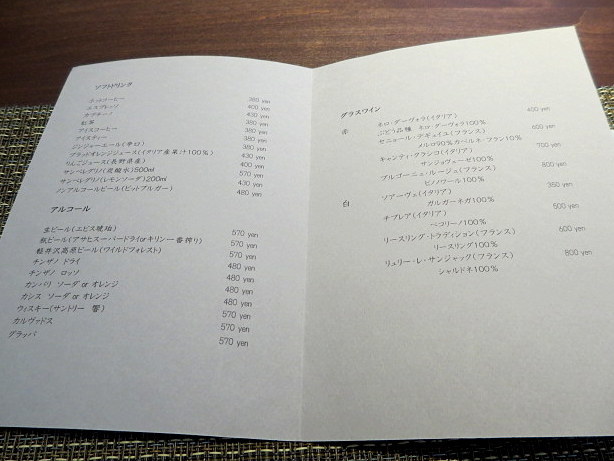 ソフトドリンク
ホットコーヒー 380 yen
エスプレッソ 400 yen
カプチーノ 430 yen
紅茶 380 yen
アイスコーヒー 380 yen
アイスティー 380 yen
ジンジャーエール(辛口) 380 yen
ブラッドオレンジジュース(イタリア産果汁100%) 430 yen
りんごジュース(長野県産) 400 yen
サンペレグリノ(炭酸水)500ml 570 yen
サンペレグリノ(レモンソーダ)200ml 430 yen
ノンアルコールビール(ビットブルガー) 480 yen
アルコール
生ビール(エビス琥珀) 570 yen
瓶ビール(アサヒスーパードライorキリン一番搾り) 570 yen
軽井沢高原ビール(ワイルドフォレスト) 570 yen
チンザノ ドライ 480 yen
チンザノ ロッソ 480 yen
カンパリ ソーダ or オレンジ 480 yen
カシス ソーダ or オレンジ 480 yen
ウィスキー(サントリー 響) 570 yen
カルヴァドス 570 yen
グラッパ 570 yen
グラスワイン
赤 ネロ・ダーヴォラ(イタリア) 400 yen
ぶどう品種 ネロ・ダーヴォラ100%
セニョール・デギュイユ(フランス) 600 yen
メルロ90%カベルネ・フラン10%
キャンティ・クラシコ(イタリア) 700 yen
サンジョヴェーゼ100%
ブルゴーニュ・ルージュ(フランス) 800 yen
ピノノワール100%
白 ソアーヴェ(イタリア) 350 yen
ガルガーネガ100%
(イタリア) 500 yen
ペコリーノ100%
リースリング・トラディション(フランス) 600 yen
リースリング100%
リュリー・レ・サンジャック(フランス) 800 yen
シャルドネ100%